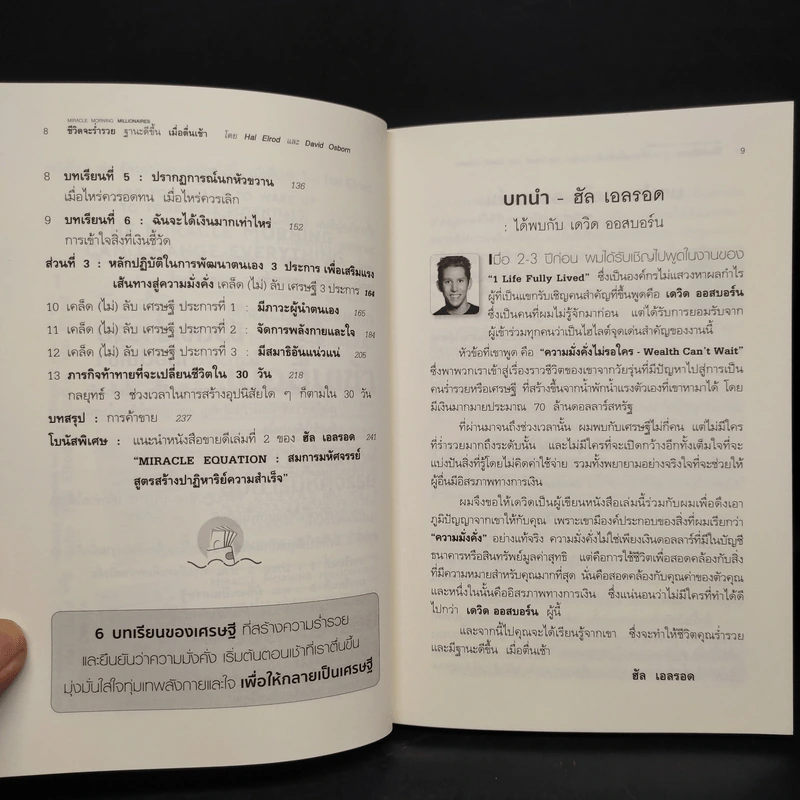 MIRACLE MORNING MILLIONAIRES
8 ชีวิตจะร่ำรวย ฐานะดีขึ้น เมื่อตื่นเช้า โดย Hal Elrod และ David Osborn
8 บทเรียนที่ 5 : ปรากฏการณ์นกหัวขวาน 136
เมื่อไหร่ควรอดทน เมื่อไหร่ควรเลิก
9 บทเรียนที่ 6 : ฉันจะได้เงินมากเท่าไหร่ 152
การเข้าใจสิ่งที่เงินชี้วัด
ส่วนที่ 3 : หลักปฏิบัติในการพัฒนาตนเอง 3 ประการ เพื่อเสริมแรง
เส้นทางสู่ความมั่งคั่ง เคล็ด (ไม่) ลับ เศรษฐี 3 ประการ 164
10 เคล็ด (ไม่) ลับ เศรษฐี ประการที่ 1 : มีภาวะผู้นำตนเอง 165
11 เคล็ด (ไม่) ลับ เศรษฐี ประการที่ 2 : จัดการพลังกายและใจ 184
12 เคล็ด (ไม่) ลับ เศรษฐี ประการที่ 3 : มีสมาธิอันแน่วแน่ 205
13 ภารกิจท้าทายที่จะเปลี่ยนชีวิตใน 30 วัน 218
กลยุทธ์ 3 ช่วงเวลาในการสร้างอุปนิสัยใด ๆ ก็ตามใน 30 วัน
บทสรุป : การค้าขาย 237
โบนัสพิเศษ : แนะนำหนังสือขายดีเล่มที่ 2 ของ ฮัล เอลรอด 241
“MIRACLE EQUATION : สมการมหัศจรรย์
สูตรสร้างปาฏิหาริย์ความสำเร็จ”
6 บทเรียนของเศรษฐี ที่สร้างความร่ำรวย
และยืนยันว่าความมั่งคั่ง เริ่มต้นตอนเช้าที่เราตื่นขึ้น
มุ่งมั่นใส่ใจทุ่มเทพลังกายและใจ เพื่อให้กลายเป็นเศรษฐี
9
บทนำ - ฮัล เอลรอด
: ได้พบกับ เดวิด ออสบอร์น
เมื่อ 2-3 ปีก่อน ผมได้รับเชิญไปพูดในงานของ
“1 Life Fully Lived” ซึ่งเป็นองค์กรไม่แสวงหาผลกำไร
ผู้ที่เป็นแขกรับเชิญคนสำคัญที่ขึ้นพูดคือ เดวิด ออสบอร์น
ซึ่งเป็นคนที่ผมไม่รู้จักมาก่อน แต่ได้รับการยอมรับจาก
ผู้เข้าร่วมทุกคนว่าเป็นไฮไลต์จุดเด่นสำคัญของงานนี้
หัวข้อที่เขาพูด คือ “ความมั่งคั่งไม่รอใคร - Wealth Can't Wait”
ซึ่งพาพวกเราเข้าสู่เรื่องราวชีวิตของเขาจากวัยรุ่นที่มีปัญหาไปสู่การเป็น
คนร่ำรวยหรือเศรษฐี ที่สร้างขึ้นจากน้ำพักน้ำแรงตัวเองที่เขาหามาได้ โดย
มีเงินมากมายประมาณ 70 ล้านดอลลาร์สหรัฐ
ที่ผ่านมาจนถึงช่วงเวลานั้น ผมพบกับเศรษฐีไม่กี่คน แต่ไม่มีใคร
ที่ร่ำรวยมากถึงระดับนั้น และไม่มีใครที่จะเปิดกว้างอีกทั้งเต็มใจที่จะ
แบ่งปันสิ่งที่รู้โดยไม่คิดค่าใช้จ่าย รวมทั้งพยายามอย่างจริงใจที่จะช่วยให้
ผู้อื่นมีอิสรภาพทางการเงิน
ผมจึงขอให้เดวิดเป็นผู้เขียนหนังสือเล่มนี้ร่วมกับผมเพื่อดึงเอา
ภูมิปัญญาจากเขาให้กับคุณ เพราะเขามีองค์ประกอบของสิ่งที่ผมเรียกว่า
“ความมั่งคั่ง” อย่างแท้จริง ความมั่งคั่งไม่ใช่เพียงเงินดอลลาร์ที่มีในบัญชี
ธนาคารหรือสินทรัพย์มูลค่าสุทธิ แต่คือการใช้ชีวิตเพื่อสอดคล้องกับสิ่ง
ที่มีความหมายสำหรับคุณมากที่สุด นั่นคือสอดคล้องกับคุณค่าของตัวคุณ
และหนึ่งในนั้นคืออิสรภาพทางการเงิน ซึ่งแน่นอนว่าไม่มีใครที่ทำได้ดี
ไปกว่า เดวิด ออสบอร์น ผู้นี้
และจากนี้ไปคุณจะได้เรียนรู้จากเขา ซึ่งจะทำให้ชีวิตคุณร่ำรวย
และมีฐานะดีขึ้น เมื่อตื่นเช้า
ฮัล เอลรอด